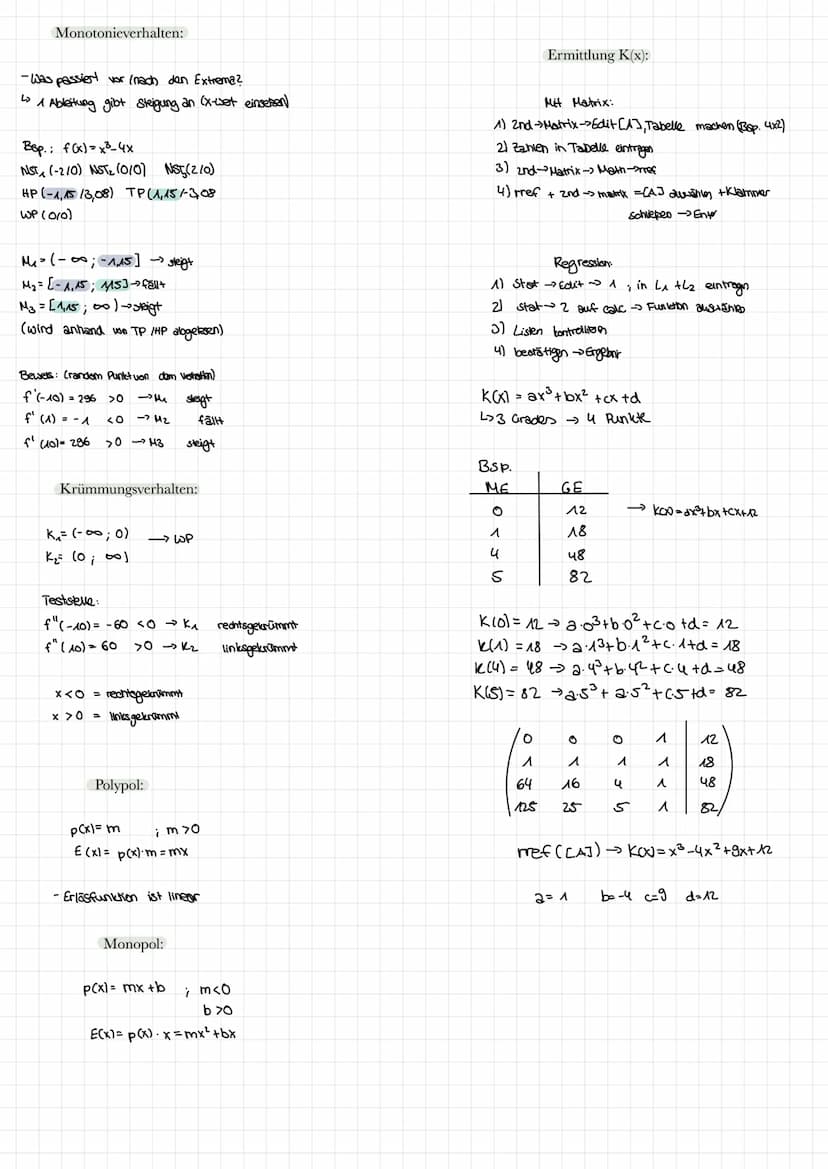 Monotonieverhalten:
- Was passiert vor/nach den Extrema?
↳ 1 Ableitung gibt Steigung an (x-Wert einsetzen)
Bsp.: f(x) = x³-4x
NST₁ (-2/0) NST₂ (0/0) NST₃ (2/0)
HP (-1,15 /3,08) TP (1,15/-3,08
WP (0/0)
M₁ = (- ∞ ; -1,15] → steigt
M₂ = [-1,15 ; 1,15] → fällt
M₃ = [1,15 ; ∞) → steigt
(wird anhand von TP /HP abgelesen)
Beweis: (random Punkt von dem Verhalten)
f'(-10) = 296 >0 → M₁ steigt
f' (1) = -1 <0 → M2 fällt
f' (10) = 296 >0 → M3 steigt
Krümmungsverhalten:
K₁= (-∞; 0) → WP
K₂= (0 ; ∞)
Teststelle:
f"(-10) = -60 <0 → K₁ rechtsgekrümmt
f" (10) = 60 >0 → K₂ linksgekrümmt
x<0 = rechtsgekrümmt
x >0 = linksgekrümmt
Polypol:
p(x) = m ; m >0
E (x) = p(x)·m = mx
- Erlösfunktion ist linear
Monopol:
p(x) = mx +b ; m<0
b >0
E(x) = p(x) · x = mx² +bx
Ermittlung K(x):
Mit Matrix:
1) 2nd → Matrix → Edit [A], Tabelle machen (Bsp. 4x2)
2) Zahlen in Tabelle eintragen
3) 2nd → Matrix → Math → rref
4) rref + 2nd → matrix = [A] auswählen + Klammer
schließen → Enter
Regression:
1) Stat → Edit → 1 , in L₁ + L₂ eintragen
2) Stat → 2 auf calc → Funktion auswählen
3) Listen kontrollieren
4) bestätigen → Ergebnis
K(x) = ax³ + bx² + cx + d
↳ 3 Grades → 4 Punkte
Bsp.
ME GE
0 12 → K(x) = ax³+bx+cx+12
1 18
4 48
5 82
K(0) = 12 → a·0³+b·0²+c·0 +d = 12
K(1) = 18 → a·1³+b·1²+c·1+d = 18
K(4) = 48 → a·4³+b·4²+c·4 +d = 48
K(5) = 82 → a·5³ + a·5² + c·5 +d = 82
0 0 0 1 12
1 1 1 1 18
64 16 4 1 48
125 25 5 1 82
rref ([A]) → K(x) = x³-4x²+9x+12
a = 1 b=-4 c=9 d=12